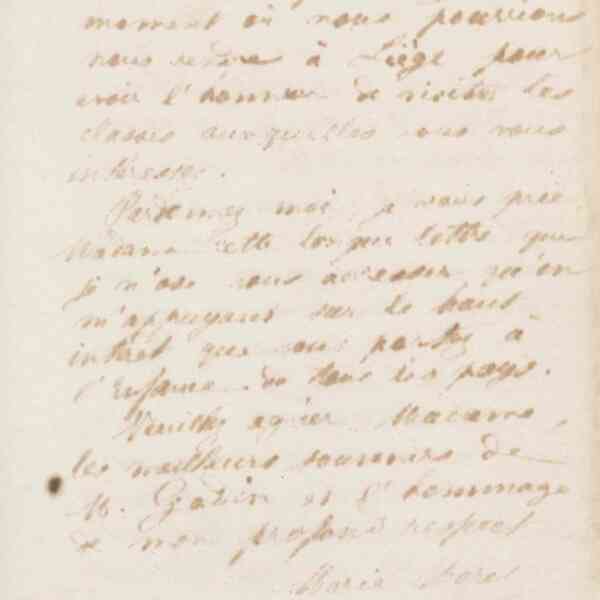 moment où nous pourrions
nous rendre à Liège pour
avoir l'honneur de visiter les
classes auxquelles vous vous
intéressez.
Pardonnez moi, je vous prie
Madame cette longue lettre que
je n'ose vous adresser qu'en
m'appuyant sur le haut
intérêt que vous portez à
l'Enfance de tous les pays.
Veuillez agréer Madame,
les meilleurs souvenirs de
M. Godin et l'hommage
de mon profond respect
Marie Moret